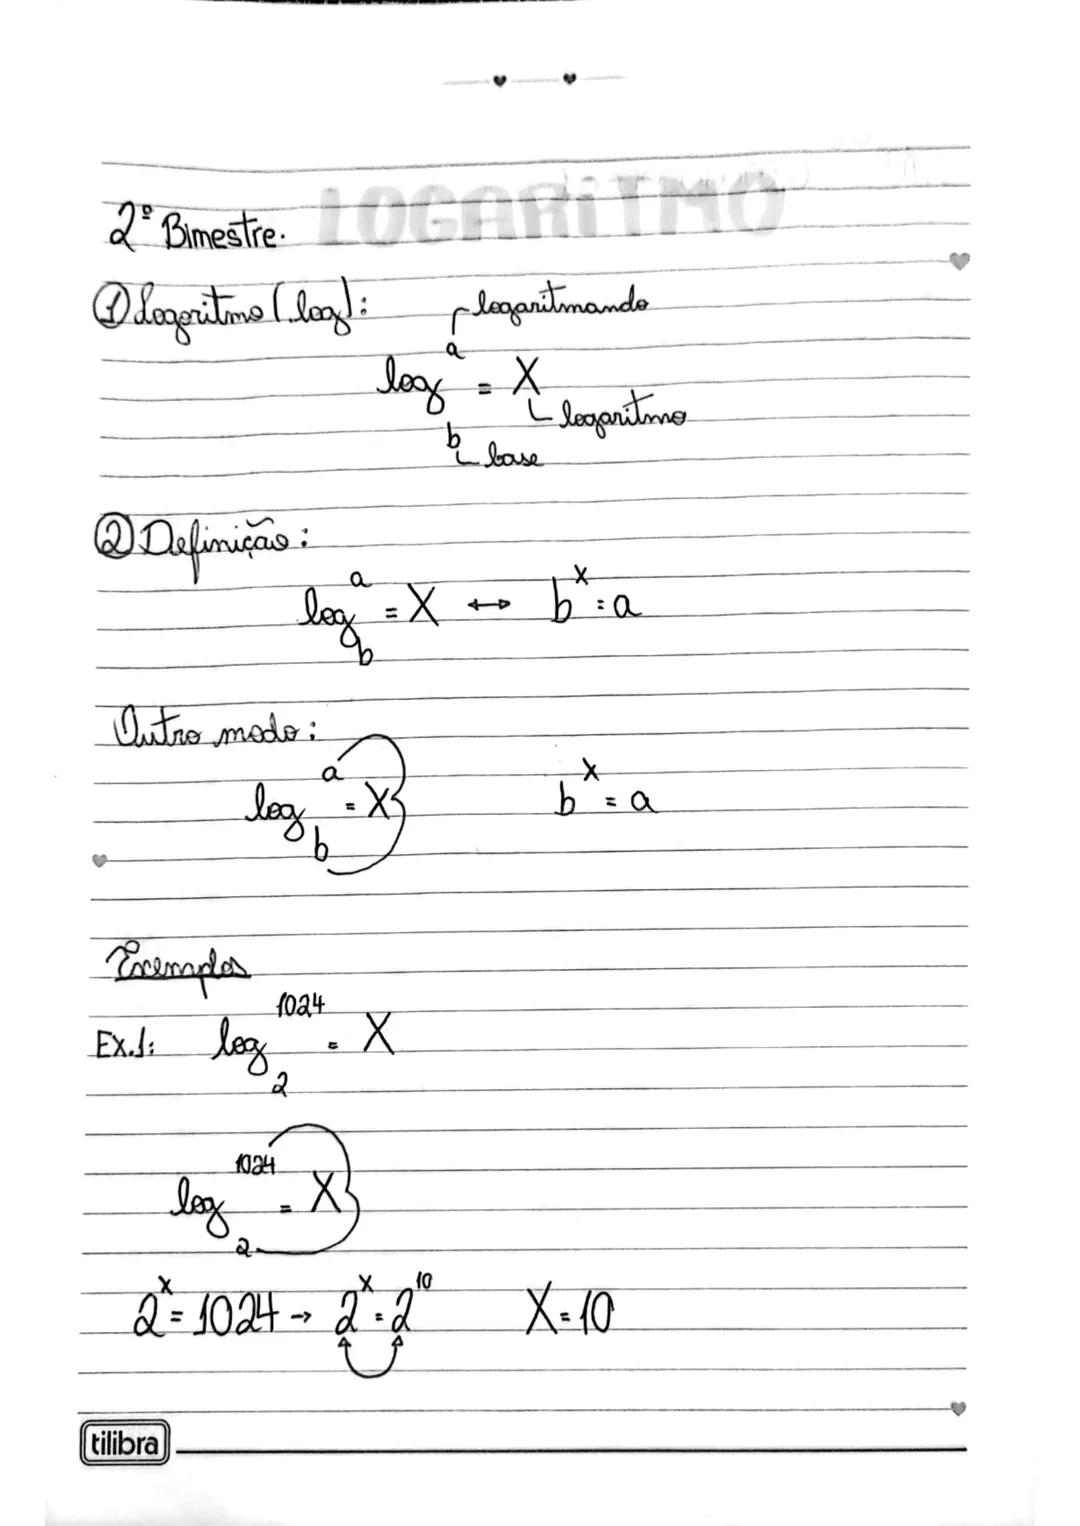 LOGARITMO
2º Bimestre.
① Logaritmo (log):
logaritmando
log_b^a = X
logaritmo
base
② Definição:
log_b^a = X ↔ b^x = a
Outro modo:
log_b^a = X b^x = a
Exemplos
EX.1: log_2^1024 = X
log_2^1024 = X
2^x = 1024 → 2^x = 2^10 X = 10
tilibra